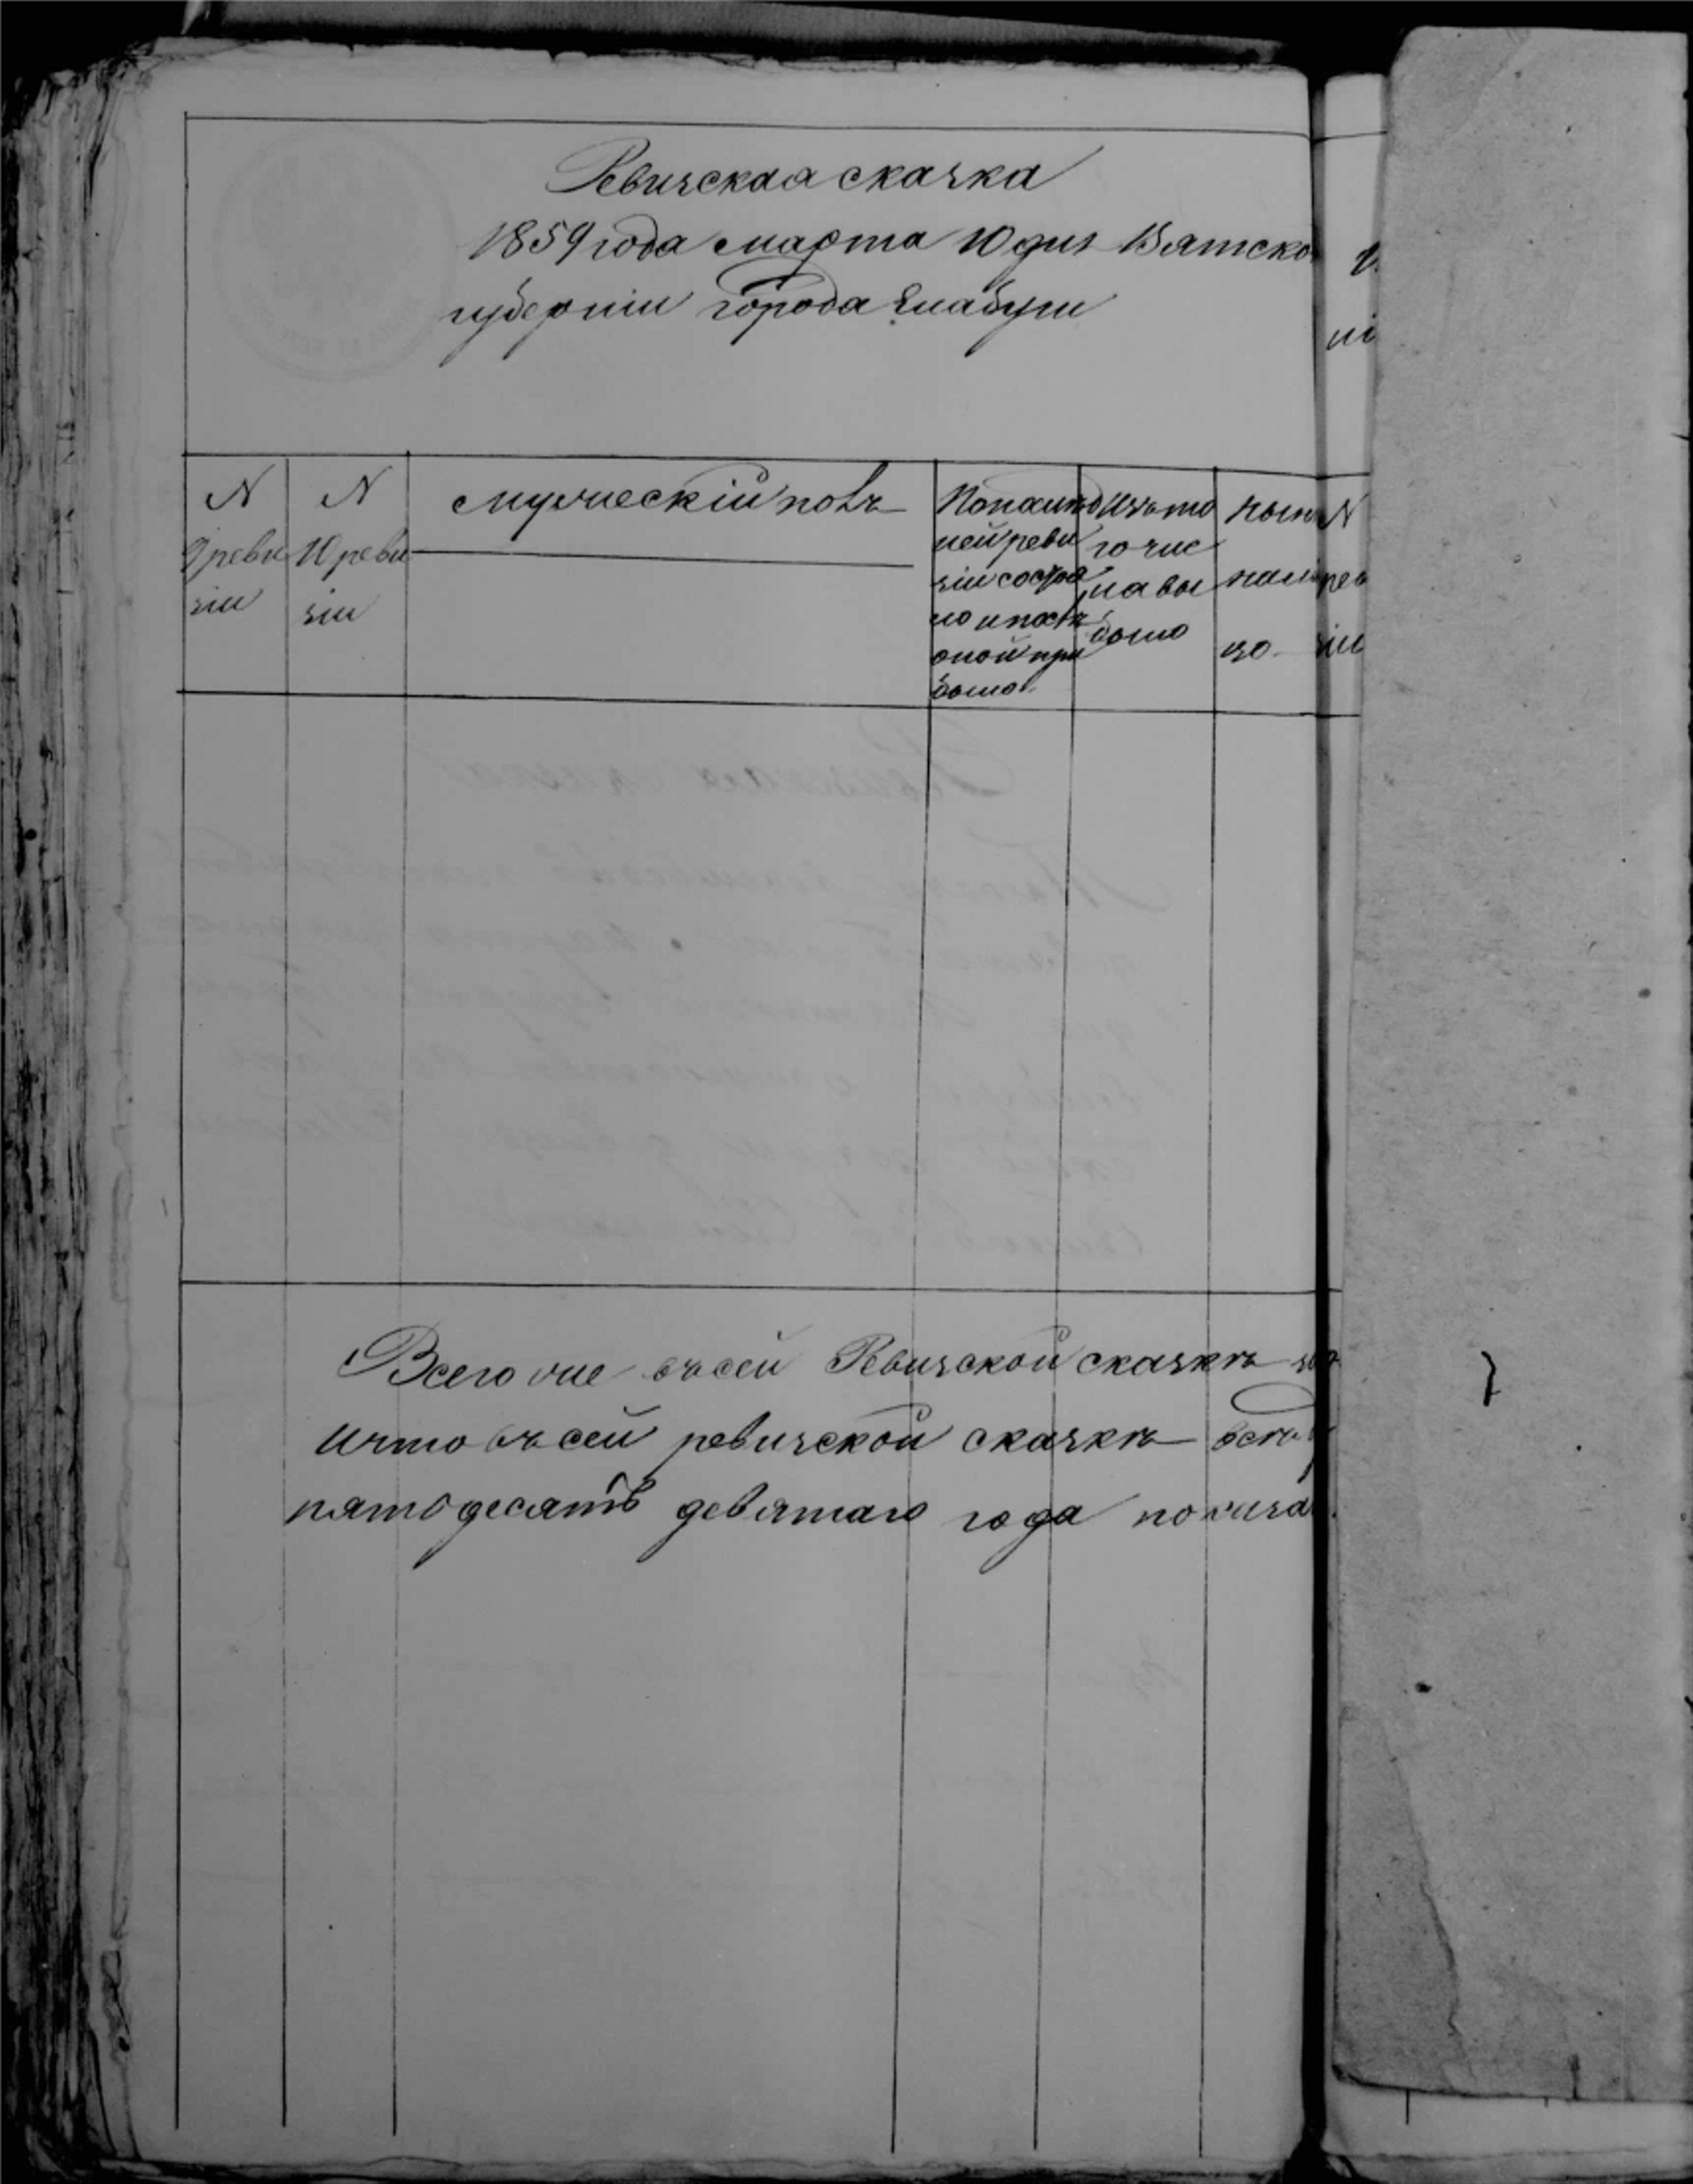 Ревизская сказка
1859 года марта 10 дня Вятско
губерніи города Елабуги
N
9 реви
зіи
N
10 реви
зіи
мужескій полъ
По послѣд
ней реви
зіи состоя
ло и послѣ
оной при
было
Изъ то
го чис
ла вы
было
Нынѣ
на ли
цо
N
рев
зіи
Всего же въ сей Ревизской сказкѣ
И что въ сей ревизской сказкѣ всѣ
пятьдесятъ девятаго года показа